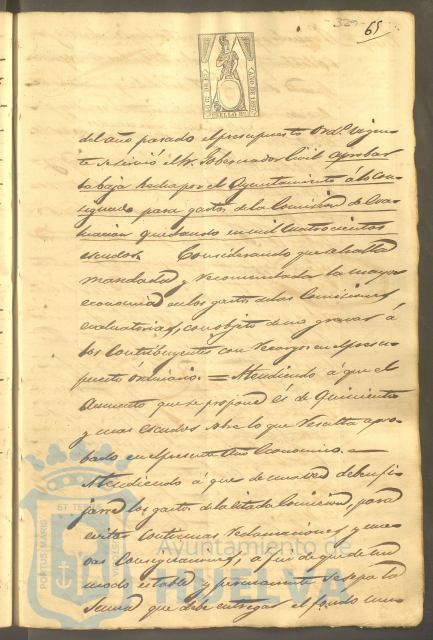 65
SELLO 9º AÑO DE 187
del año pasado el presupuesto Ord.º vigen-
te se sirvió el Sr. Gobernador Civil aprobar
la baja hecha por el Ayuntamiento á lo con-
signado para gastos de la Comision de Eva-
luacion quedando en mil cuatrocientos
escudos. Considerando que está
mandada y recomendada la mayor
economía en los gastos de las Comisiones
evaluatorias, con objeto de no gravar á
los Contribuyentes con recargos en el presu-
puesto ordinario. = Atendiendo á que el
aumento que se propone és de Quinientos
y mas escudos sobre lo que resulta apro-
bado en el presente año Economico. =
Atendiendo á que de una vez deben fi-
jarse los gastos de la citada Comision, para
evitar continuas reclamaciones y nue-
vas consignaciones, a fin de que de un
modo estable y permanente se sepa la
suma que debe entregar el fondo mu-
PORTUS MARIS ET TERRÆ
Ayuntamiento de
HUELVA